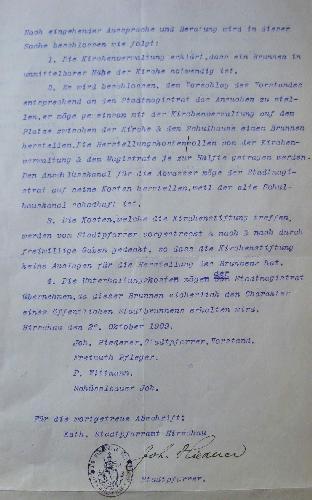 Nach eingehender Aussprache und Beratung wird in dieser
Sache beschlossen wie folgt:
1. Die Kirchenverwaltung erklärt, dass ein Brunnen in
unmittelbarer Nähe der Kirche notwendig ist.
2. Es wird beschlossen, dem Vorschlag des Vorstandes
entsprechend an den Stadtmagistrat das Ansuchen zu stel-
len, er möge gemeinsam mit der Kirchenverwaltung auf dem
Platze zwischen der Kirche & dem Schulhause einen Brunnen
herstellen. Die Herstellungskosten sollen von der Kirchen-
verwaltung & dem Magistrate je zur Hälfte getragen werden.
Den Anschlusskanal für die Abwasser möge der Stadtmagi-
strat auf seine Kosten herstellen, weil der alte Schul-
hauskanal schadhaft ist.
3. Die Kosten, welche die Kirchenstiftung treffen,
werden vom Stadtpfarrer vorgestreckt & nach & nach durch
freiwillige Gaben gedeckt, so dass die Kirchenstiftung
keine Auslagen für die Herstellung des Brunnens hat.
4. Die Unterhaltungskosten möge der Stadtmagistrat
übernehmen, da dieser Brunnen sicherlich den Charakter
eines öffentlichen Stadtbrunnens erhalten wird.
Hirschau den 2. Oktober 1909.
Joh. Biederer, Stadtpfarrer, Vorstand.
Freimuth Pfleger.
P. Wittmann.
Schüsslbauer Joh.
Für die wortgetreue Abschrift:
Kath. Stadtpfarramt Hirschau
Joh. Biederer
Stadtpfarrer.